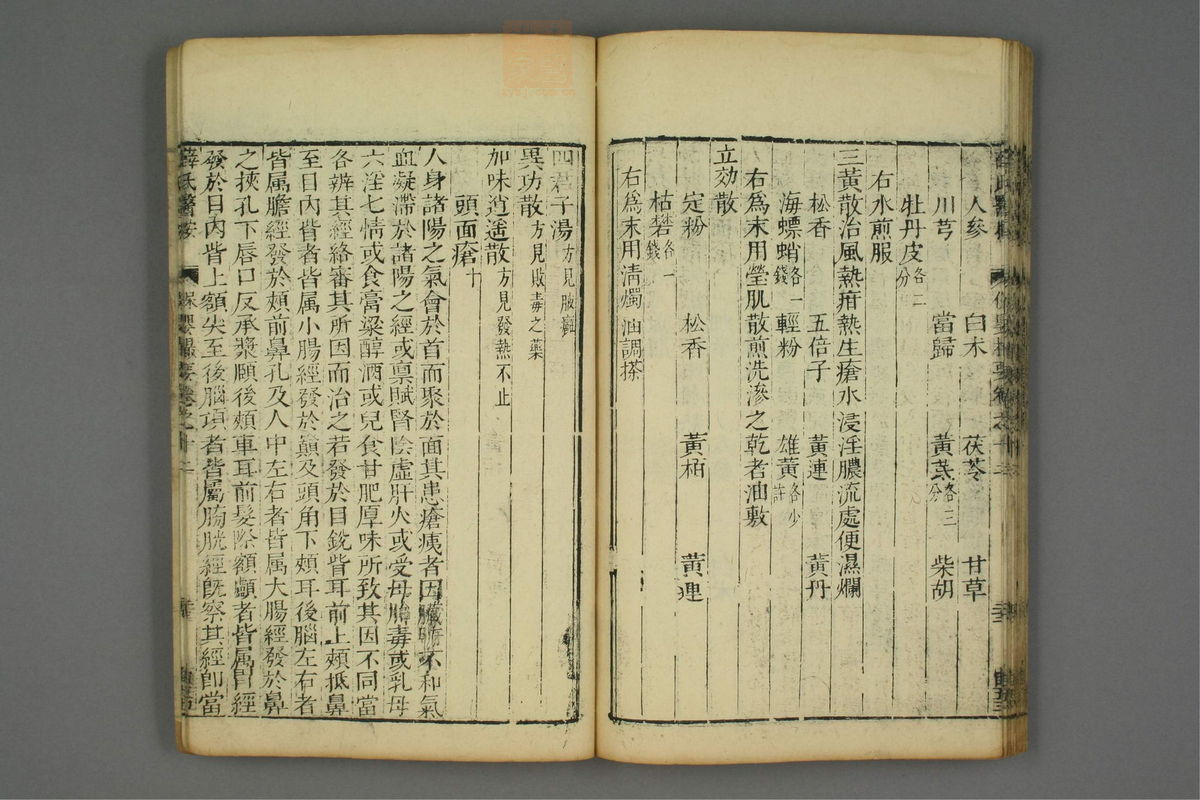 人參 白朮 茯苓 甘草
川芎 當歸 黃芪各三分 柴胡
牡丹皮各二分
右水煎服
三黃散治風熱疳熱生瘡水浸淫膿流處便濕爛
松香 五倍子 黃連 黃丹
海螵蛸各一錢 輕粉 雄黃各少許
右爲末用瑩肌散煎洗滲之乾者油敷
立効散
定粉 松香 黃栢 黃連
枯礬各一錢
右爲末用清燭油調搽
四君子湯方見腹癰
異功散方見敗毒之藥
加味逍遙散方見發熱不止
頭面瘡十
人身諸陽之氣會於首而聚於面其患瘡痍者因臟腑不和氣
血凝滯於諸陽之經或禀賦腎陰虛肝火或受母胎毒或乳母
六淫七情或食膏粱醇酒或兒食甘肥厚味所致其因不同當
各辨其經絡審其所因而治之若發於目銳眥耳前上頰抵鼻
至目內眥者皆属小腸經發於巔及頭角下頰耳後腦左右者
皆属膽經發於頰前鼻孔及人中左右者皆属大腸經發於鼻
之挾孔下唇口反承漿頤後頰車耳前髮際額顱者皆属胃經
發於目內眥上額尖至後腦項者皆属膀胱經既察其經卽當
薛氏醫按 保嬰撮要卷之十二